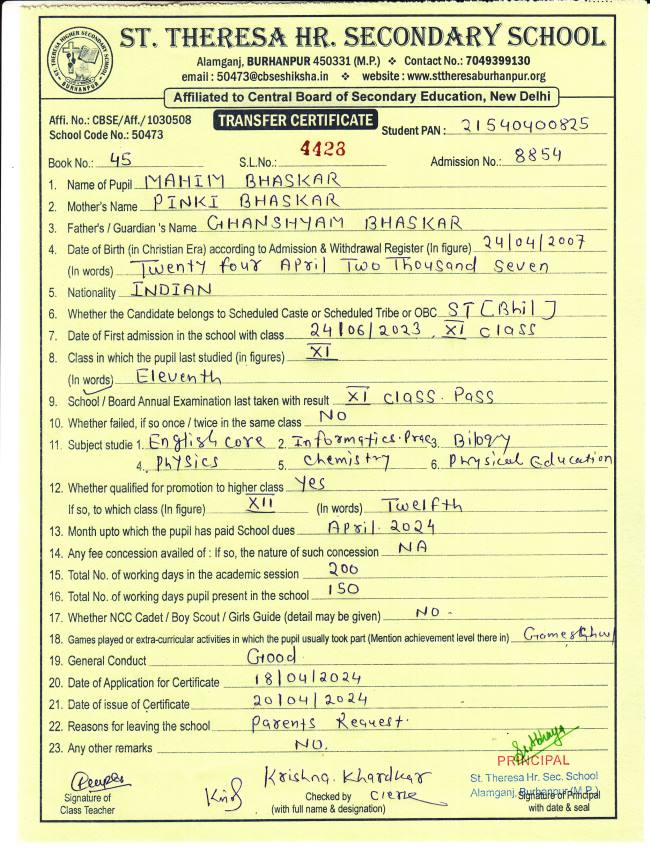 ST. THERESA HIGHER SECONDARY SCHOOL
BURHANPUR
ST. THERESA HR. SECONDARY SCHOOL
Alamganj, BURHANPUR 450331 (M.P.) ❖ Contact No.: 7049399130
email : 50473@cbseshiksha.in ❖ website : www.sttheresaburhanpur.org
Affiliated to Central Board of Secondary Education, New Delhi
Affi. No.: CBSE/Aff./1030508 TRANSFER CERTIFICATE Student PAN : 21540400825
School Code No.: 50473
Book No.: 45 S.L.No.: 4423 Admission No.: 8854
1. Name of Pupil MAHIM BHASKAR
2. Mother's Name PINKI BHASKAR
3. Father's / Guardian 's Name GHANSHYAM BHASKAR
4. Date of Birth (in Christian Era) according to Admission & Withdrawal Register (In figure) 24/04/2007
(In words) Twenty four April Two Thousand Seven
5. Nationality INDIAN
6. Whether the Candidate belongs to Scheduled Caste or Scheduled Tribe or OBC ST [Bhil]
7. Date of First admission in the school with class 24/06/2023, XI class
8. Class in which the pupil last studied (in figures) XI
(In words) Eleventh
9. School / Board Annual Examination last taken with result XI class. Pass
10. Whether failed, if so once / twice in the same class NO
11. Subject studie 1. English core 2. Informatics.Prac 3. Bilogy
4. Physics 5. Chemistry 6. Physical Education
12. Whether qualified for promotion to higher class Yes
If so, to which class (In figure) XII (In words) Twelfth
13. Month upto which the pupil has paid School dues April. 2024
14. Any fee concession availed of : If so, the nature of such concession NA
15. Total No. of working days in the academic session 200
16. Total No. of working days pupil present in the school 150
17. Whether NCC Cadet / Boy Scout / Girls Guide (detail may be given) NO -
18. Games played or extra-curricular activities in which the pupil usually took part (Mention achievement level there in)
19. General Conduct Good
20. Date of Application for Certificate 18/04/2024
21. Date of issue of Certificate 20/04/2024
22. Reasons for leaving the school Parents Request.
23. Any other remarks NO.
PRINCIPAL
St. Theresa Hr. Sec. School
Alamganj, Burhanpur (M.P.)
Krishna. Khardkar
Signature of Checked by Clerk Signature of Principal
Class Teacher (with full name & designation) with date & seal